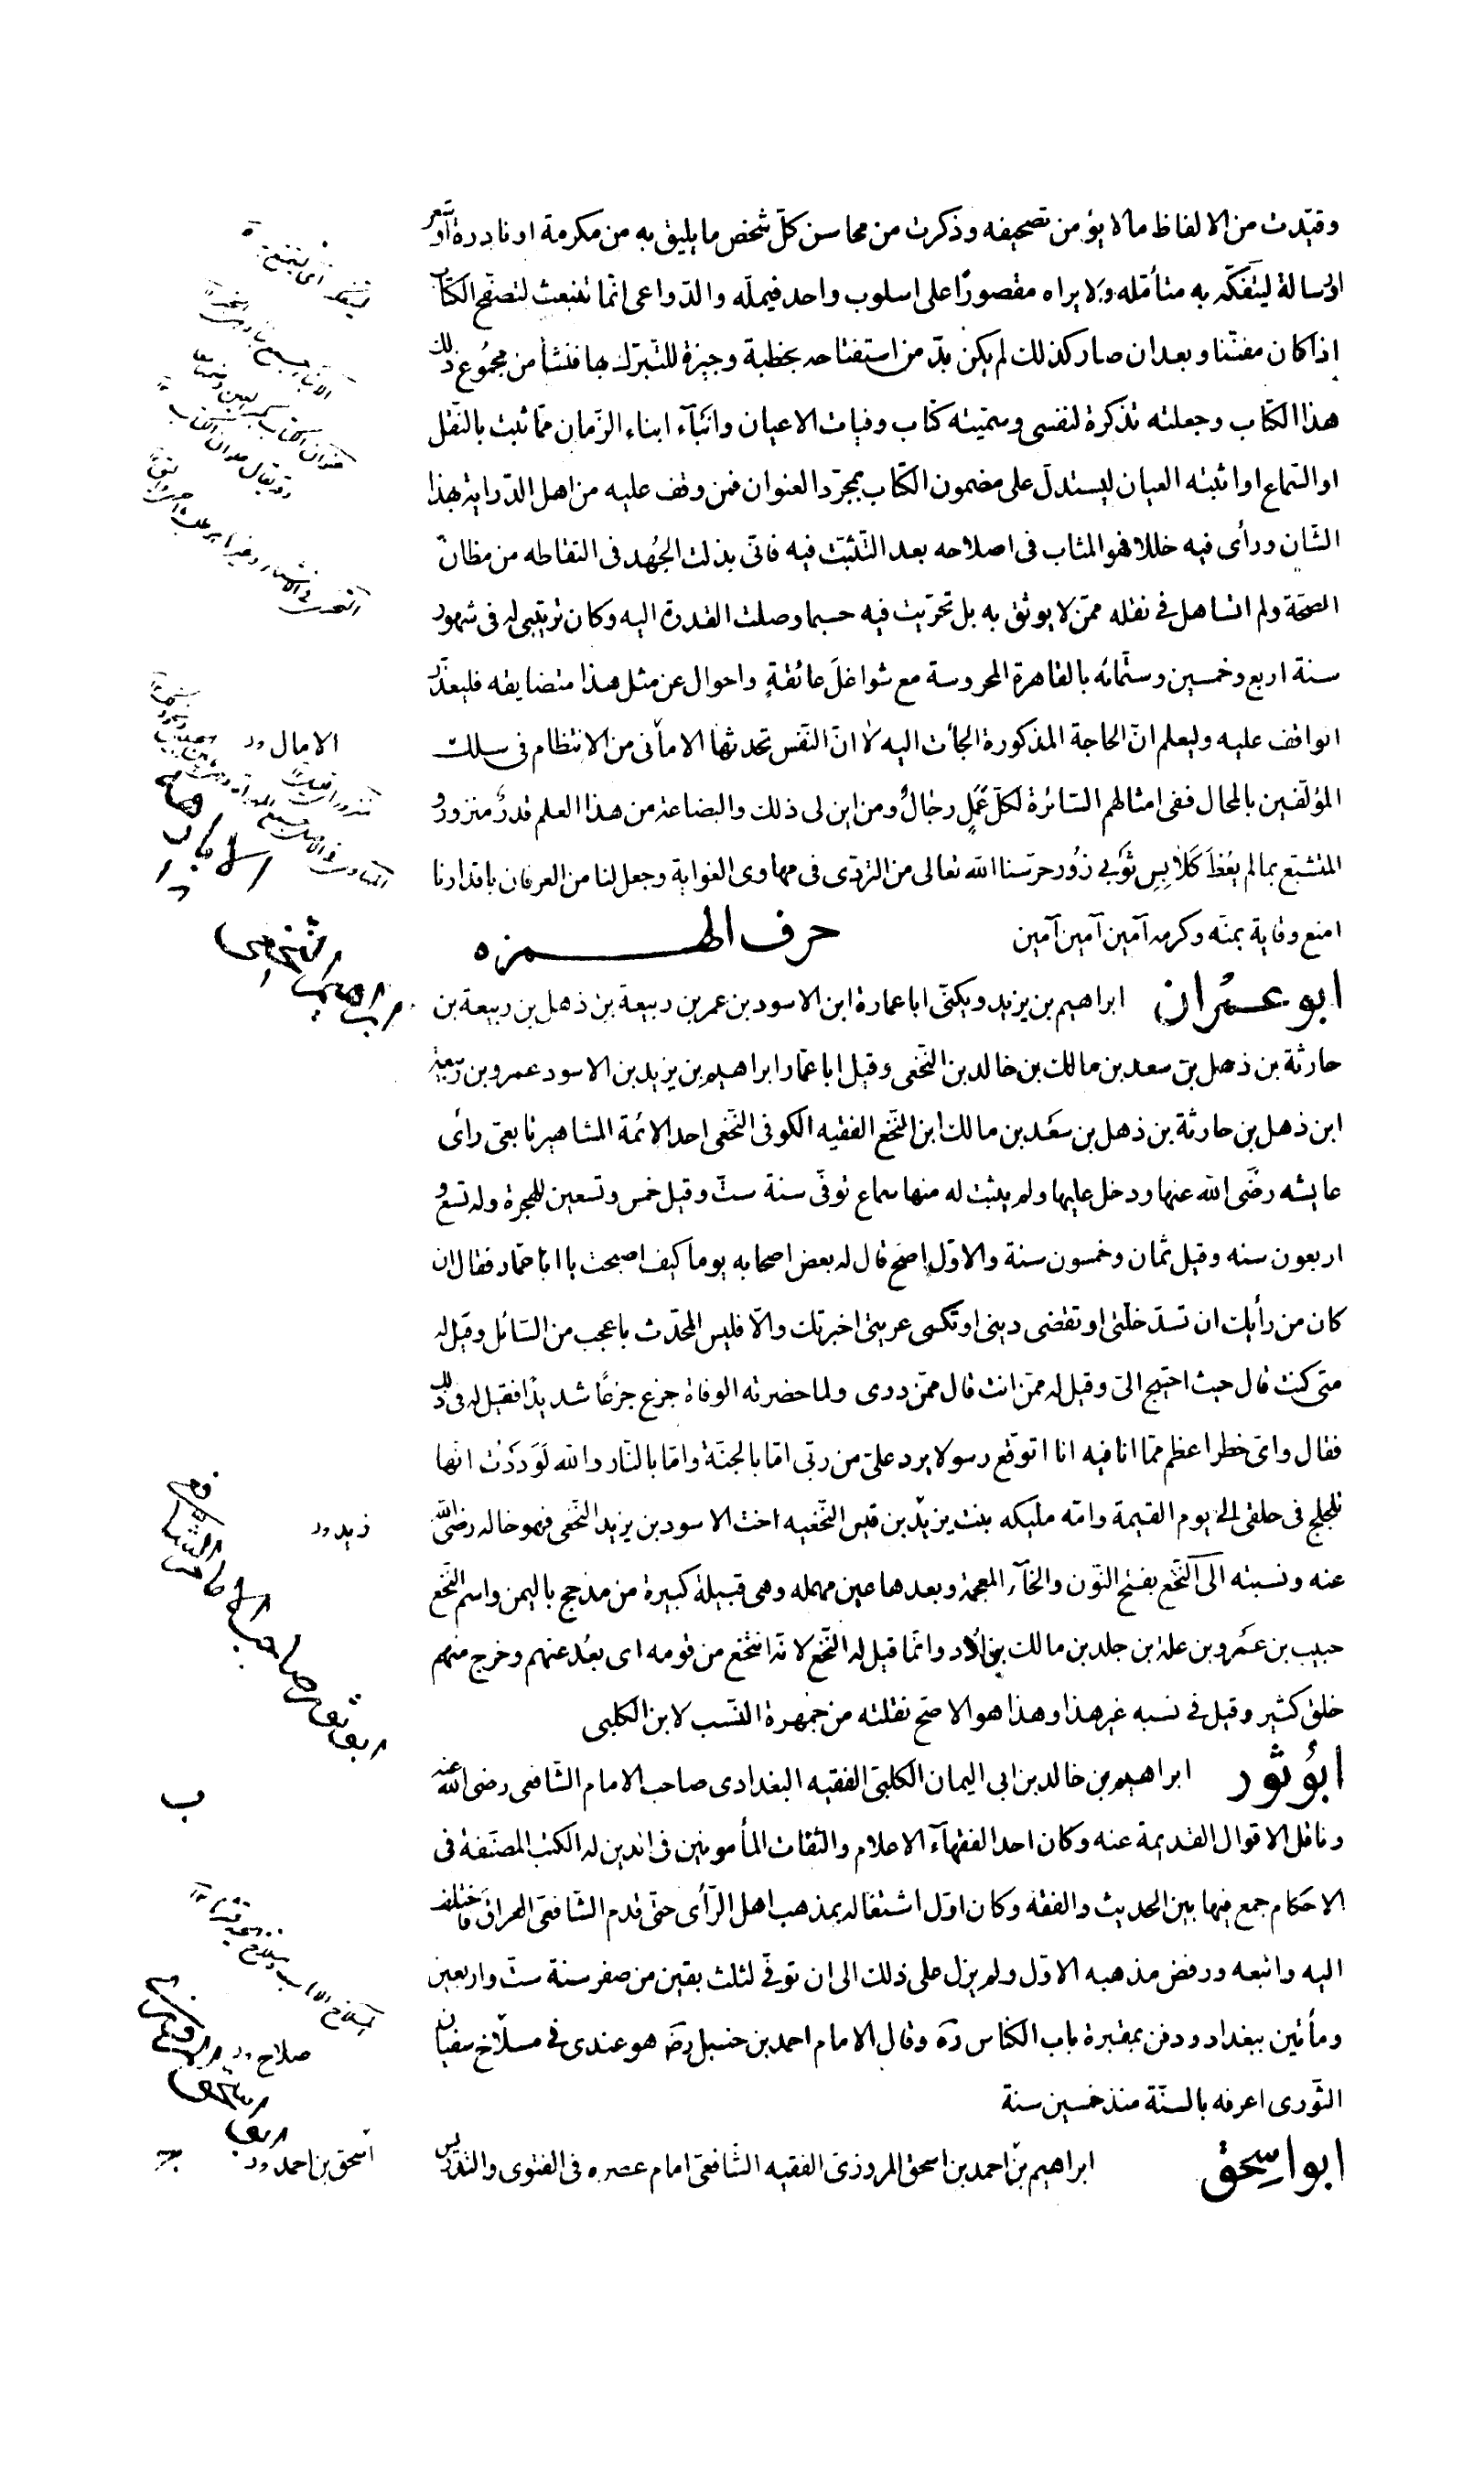 وقيّدت من الالفاظ مالا يؤمن تصحيفه وذكرت من محاسن كلّ شخص ما يليق به من مكرمة او نادرة او شعر
او رسالة ليتفكّه به متأمّله ولا يراه مقصورًا على اسلوب واحد فيملّه والدّواعى انّما تنبعث لتصفّح الكتاب
اذا كان مفتنّا وبعد ان صار كذلك لم يكن بدّ من استفتاحه بخطبة وجيزة للتبرّك بها فنشأ من مجموع ذلك
هذا الكتاب وجعلته تذكرة لنفسى وسمّيته كتاب وفيات الاعيان وانبآء ابناء الزّمان ممّا ثبت بالنّقل
او السّماع او اثبته العيان ليستدلّ على مضمون الكتاب بمجرّد العنوان فمن وقف عليه من اهل الدّراية بهذا
الشّان ورأى فيه خللا فهو المثاب فى اصلاحه بعد التّثبّت فيه فانّى بذلت الجُهد فى التقاطه من مظانّ
الصحّة ولم اتساهل فى نقله ممّن لا يوثق به بل تحرّيت فيه حسبما وصلت القدرة اليه وكان ترتيبى له فى شهور
سنة اربع وخمسين وستّمائه بالقاهرة المحروسة مع شواغلَ عائقةٍ واحوال عن مثل هذا متضايقه فليعذر
الواقف عليه وليعلم انّ الحاجة المذكورة الجأت اليه لا انّ النّفس تحدثها الامانى من الانتظام فى سلك
المؤلّفين بالمحال ففى امثالهم السّائرة لكلّ عَمَلٍ رجالٌ ومن اين لى ذلك والبضاعة من هذا العلم قدرٌ منزور و
المتشبّع بما لم يُعْطَ كَلابِسِ ثَوْبَى زُور حرّسنا الله تعالى من التردّى فى مهاوى الغواية وجعل لنا من العرفان باقدارنا
امنع وقاية بمنّه وكرمه آمين آمين آمين
حرف الهمزه
ابو عمران ابراهيم بن يزيد ويكنّى ابا عمارة ابن الاسود بن عمر بن ربيعة بن ذهل بن ربيعة بن
حارثة بن ذهل بن سعد بن مالك بن خالد بن النّخعى وقيل ابا عمّار ابراهيم بن يزيد بن الاسود عمرو بن ربيعة
ابن ذهل بن حارثة بن ذهل بن سعد بن مالك ابن النّخع الفقيه الكوفى النّخعى احد الائمّة المشاهير تابعىّ رأى
عايشه رضى الله عنها ودخل عليها ولم يثبت له منها سماع توفّى سنة ستّ وقيل خمس وتسعين للهجرة وله تسع و
اربعون سنه وقيل ثمان وخمسون سنة والاوّل اصحّ قال له بعض اصحابه يوما كيف اصبحت يا ابا حمّاد فقال ان
كان من رأيك ان تسدّ خلّتى او تقضى دينى او تكسى عريتى اخبرتك والّا فليس المحدّث باعجب من السّائل وقيل له
متى كنت قال حيث احتيج الىّ وقيل له ممّن انت قال ممّن دوى ولما حضرته الوفاة جزع جزعًا شديدًا فقيل له فى ذلك
فقال واىّ خطر اعظم ممّا انا فيه انا اتوقّع رسولا يرد علىّ من ربّى امّا بالجنّة وامّا بالنّار والله لَوَدَدْت انّها
تلجلج فى حلقى الى يوم القيمة وامّه مليكه بنت يزيد بن قيس النّخعيه اخت الاسود بن يزيد النّخعى فهو خاله رضى الله
عنه ونسبته الى النّخع بفتح النّون والخآء المعجمة وبعدها عين مهمله وهى قبيلة كبيرة من مذحج باليمن واسم النّخع
حبيب بن عمرو بن علة بن جلد بن مالك بن ادد وانّما قيل له النّخع لانّه انتخع من قومه اى بعُد عنهم وخرج منهم
خلق كثير وقيل فى نسبه غير هذا وهذا هو الاصحّ نقلته من جمهرة النّسب لابن الكلبى
ابو ثور ابراهيم بن خالد بن ابى اليمان الكلبىّ الفقيه البغدادى صاحب الامام الشّافعى رضى الله عنه
وناقل الاقوال القديمة عنه وكان احد الفقهآء الاعلام والثّقات المأمونين فى الدين له الكتب المصنّفة فى
الاحكام جمع فيها بين الحديث والفقه وكان اوّل اشتغاله بمذهب اهل الرّأى حتّى قدم الشّافعى العراق فاختلف
اليه واتبعه ورفض مذهبه الاوّل ولم يزل على ذلك الى ان توفّى لثلث بقين من صفر سنة ستّ واربعين
ومأتين ببغداد ودفن بمقبرة باب الكناس ره وقال الامام احمد بن حنبل رضه هو عندى فى مسلاخ سفيان
الثّورى اعرفه بالسنّة منذ خمسين سنة
ابو اسحق ابراهيم بن احمد بن اسحق المروزى الفقيه الشّافعىّ امام عصره فى الفتوى والتّدريس
الامال
ابراهيم النخعى
زيد
ابو ثور صاحب الامام الشافعى
ب
صلاح
اسحق بن احمد